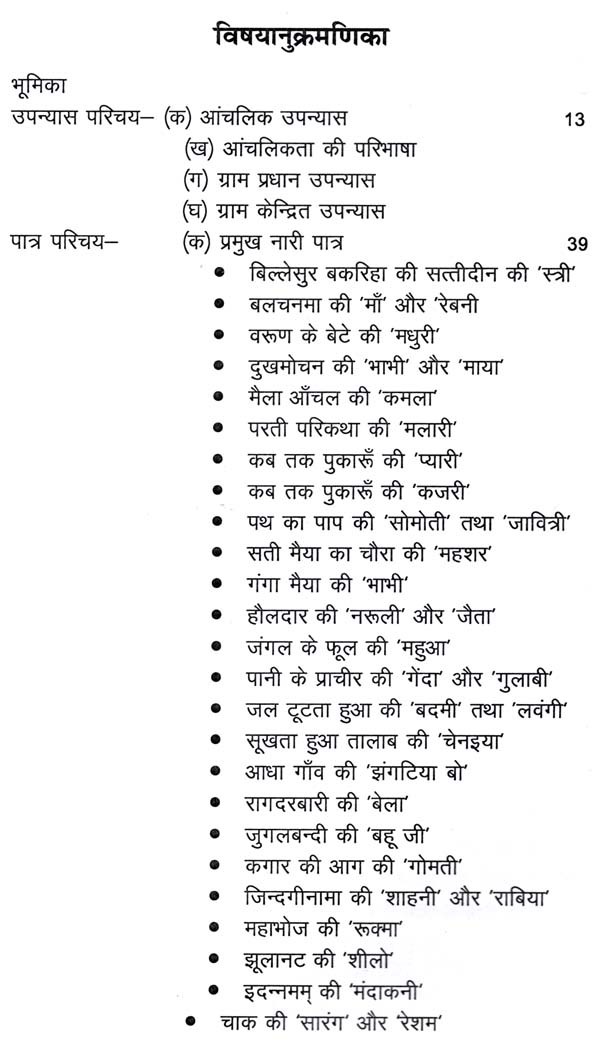 विषयानुक्रमणिका
भूमिका
उपन्यास परिचय– (क) आंचलिक उपन्यास 13
(ख) आंचलिकता की परिभाषा
(ग) ग्राम प्रधान उपन्यास
(घ) ग्राम केन्द्रित उपन्यास
पात्र परिचय– (क) प्रमुख नारी पात्र 39
• बिल्लेसुर बकरिहा की सत्तीदीन की 'स्त्री'
• बलचनमा की 'माँ' और 'रेबनी
• वरूण के बेटे की 'मधुरी'
• दुखमोचन की 'भाभी' और 'माया'
• मैला आँचल की 'कमला'
• परती परिकथा की 'मलारी'
• कब तक पुकारूँ की 'प्यारी'
• कब तक पुकारूँ की 'कजरी'
• पथ का पाप की 'सोमोती' तथा 'जावित्री'
• सती मैया का चौरा की 'महशर'
• गंगा मैया की 'भाभी'
• हौलदार की 'नरूली' और 'जैता'
• जंगल के फूल की 'महुआ'
• पानी के प्राचीर की 'गेंदा' और 'गुलाबी'
• जल टूटता हुआ की 'बदमी' तथा 'लवंगी'
• सूखता हुआ तालाब की 'चेनइया'
• आधा गाँव की 'झंगटिया बो'
• रागदरबारी की 'बेला'
• जुगलबन्दी की 'बहू जी'
• कगार की आग की 'गोमती'
• जिन्दगीनामा की 'शाहनी' और 'राबिया'
• महाभोज की 'रूक्मा'
• झूलानट की 'शीलो'
• इदन्नमम् की 'मंदाकनी'
• चाक की 'सारंग' और 'रेशम'